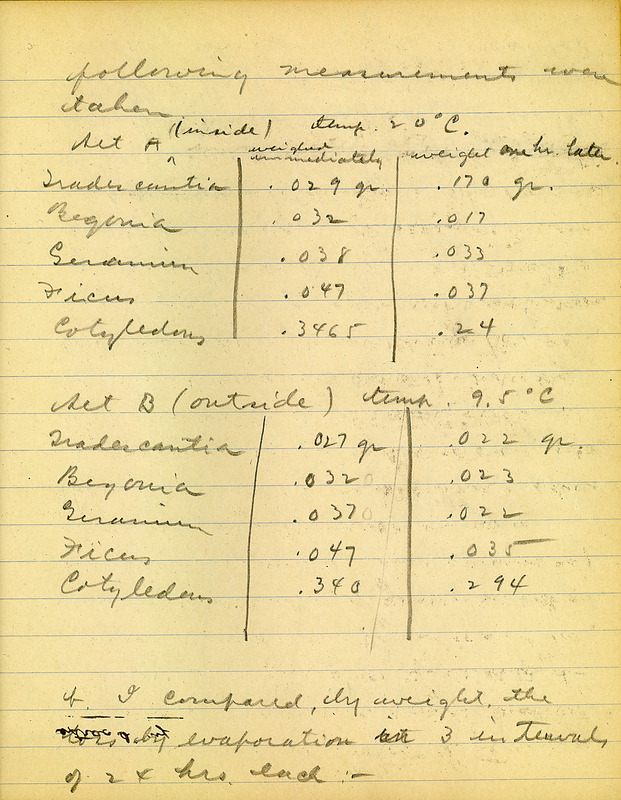 following measurements were
taken
Set A (inside) temp. 20°C.
weighed immediately weight one hr. later
Tradescantia .029 gr. .170 gr.
Begonia .032 .017
Geranium .038 .033
Ficus .047 .037
Cotyledons .3465 .24
Set B (outside) temp. 9.5°C
Tradescantia .027 gr .022 gr.
Begonia .032 .023
Geranium .037 .022
Ficus .047 .035
Cotyledons .340 .294
b. I compared, by weight, the
loss by evaporation in 3 intervals
of 24 hrs. each :-